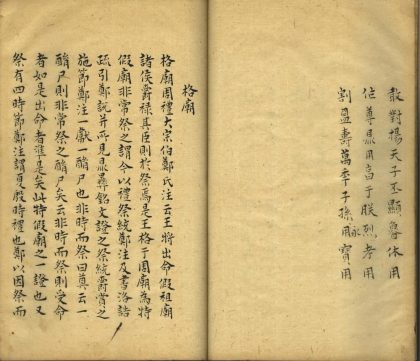 敢對揚天子丕顯魯休用
位尊鼎用亯于朕烈考用
割盨壽萬年子孫永寶用
格廟
格廟周禮大宗伯鄭氏注云王將出命假祖廟
諸侯爵祿其臣則於祭焉是王格于周廟為特
假廟非常祭之謂今以禮祭統鄭注及書洛誥
疏引鄭說并所見鼎彝銘文證之祭統爵賞之
施節鄭注一獻一酳尸也非時而祭曰奠云一
酳尸則非常祭之酳尸矣云非時而祭則受命
者如是出命者準是矣此特假廟之一證也又
祭有四時節鄭注謂夏殷時禮也鄭以因祭而